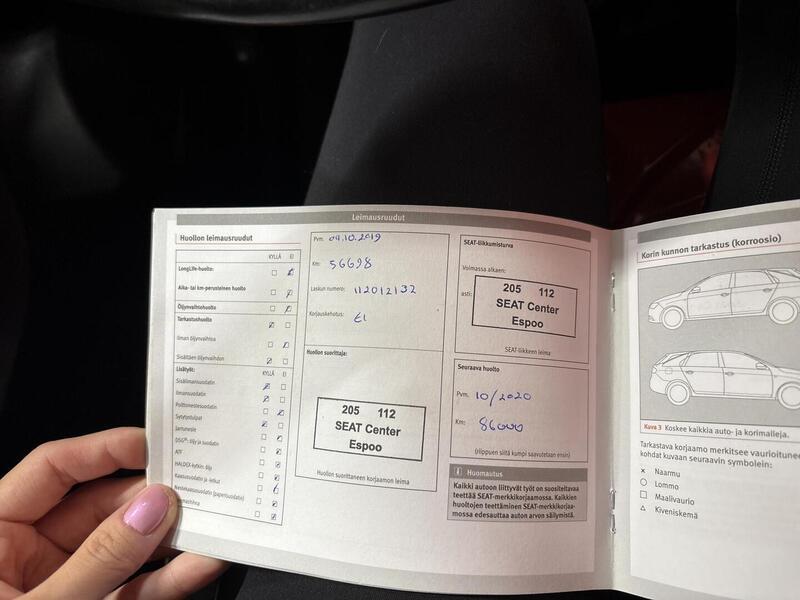 Leimausruudut
Huollon leimausruudut
KYLLÄ EI
LongLife-huolto:
Aika- tai km-perusteinen huolto
Öljynvaihtohuolto
Tarkastushuolto
Ilman öljynvaihtoa
Sisältäen öljynvaihdon
Lisätyöt: KYLLÄ EI
Sisäilmansuodatin
Ilmansuodatin
Polttonestesuodatin
Sytytystulpat
Jarruneste
DSG®: öljy ja suodatin
ATF
HALDEX-kytkin: öljy
Pvm. 09.10.2019
Km: 56698
Laskun numero: 112012132
Korjauskehotus: EI
Huollon suorittaja:
205 112
SEAT Center
Espoo
Huollon suorittaneen korjaamon leima
SEAT-liikkumisturva
Voimassa alkaen:
asti:
205 112
SEAT Center
Espoo
SEAT-liikkeen leima
Seuraava huolto
Pvm. 10/2020
Km: 86000
(riippuen siitä kumpi saavutetaan ensin)
i Huomautus
Kaikki autoon liittyvät työt on suositeltavaa
teettää SEAT-merkkikorjaamossa. Kaikkien
huoltojen teettäminen SEAT-merkkikorjaa-
mossa edesauttaa auton arvon säilymistä.
Korin kunnon tarkastus (korroosio)
Kuva 3 Koskee kaikkia auto- ja korimalleja.
Tarkastava korjaamo merkitsee vaurioitunee
kohdat kuvaan seuraavin symbolein:
× Naarmu
○ Lommo
□ Maalivaurio
△ Kiveniskemä